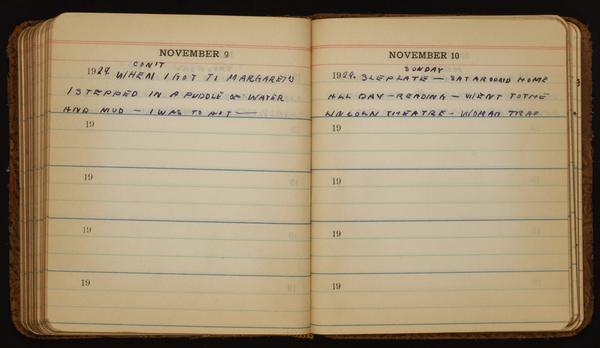 NOVEMBER 9
CON'T
1929. WHEN I GOT TO MARGARET'S
I STEPPED IN A PUDDLE OF WATER
AND MUD — I WAS TO HOT —
19
19
19
19
NOVEMBER 10
SUNDAY
1929. SLEPLATE — SAT AROUND HOME
ALL DAY — READING — WENT TO THE
LINCOLN THEATRE - WOMAN TRAP
19
19
19
19